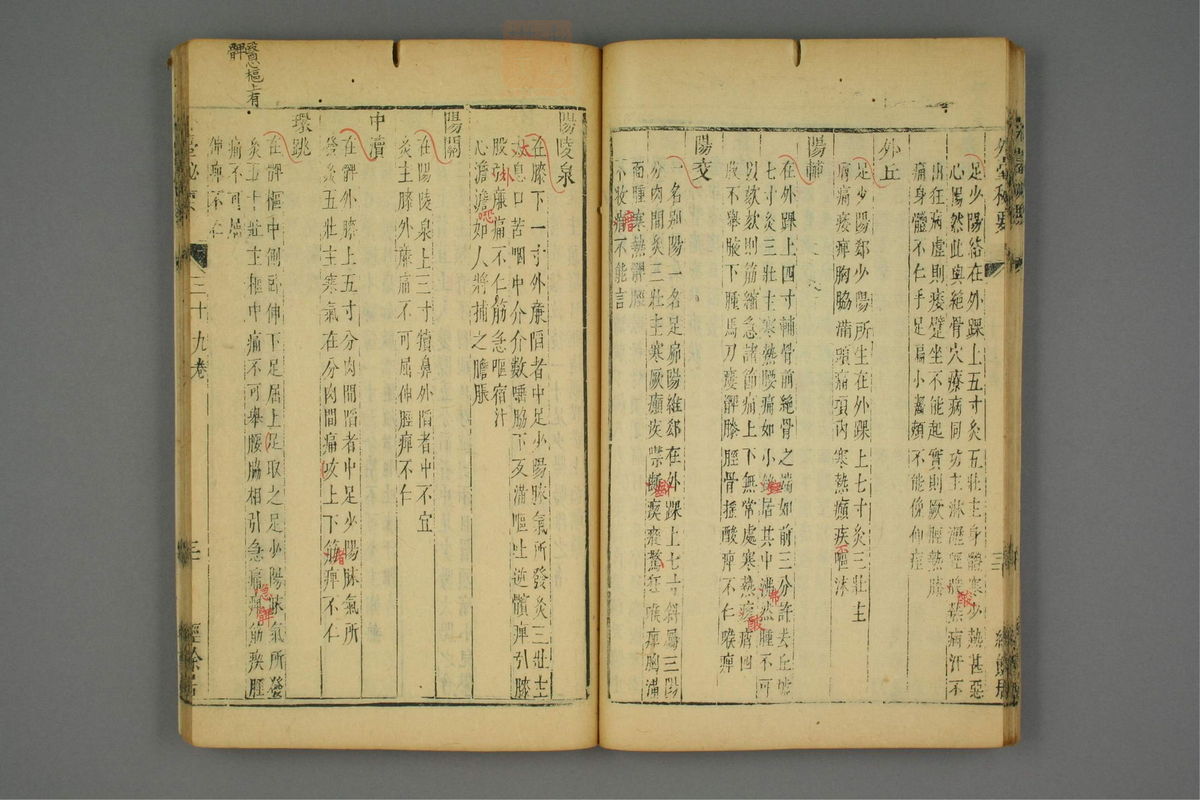 外臺秘要
足少陽絡在外踝上五寸灸五壯主身體寒少熱甚惡
心惕然此與絕骨穴療病同功主淋瀝脛酸疾病汗不
出狂病虛則痿躄坐不能起實則厥脛熱膝
痛身體不仁手足扁小齧頰不能俛仰痓
外丘
足少陽郄少陽所生在外踝上七寸灸三壯主
膚痛痿痺胸脇滿頭痛項內寒熱癲疾嘔沫
陽輔
在外踝上四寸輔骨前絕骨之端如前三分許去丘墟
七寸灸三壯主寒熱腰痛如小錘居其中沸然腫不可
以欬欬則筋縮急諸節痛上下無常處寒熱酸痟四
肢不舉腋下腫馬刀痿髀膝脛骨搖酸痺不仁喉痺
陽交
一名別陽一名足窌陽維郄在外踝上七寸斜屬三陽
分肉間灸三壯主寒厥癲疾噤齘瘈瘲驚狂喉痺胸滿
面腫寒熱髀脛
不收痛不能言
陽陵泉
在膝下一寸外廉陷者中足少陽脉氣所發灸三壯主
太息口苦咽中介介數唾脇下支滿嘔吐逆髕痺引膝
股外廉痛不仁筋急嘔宿汁
心澹澹如人將捕之膽脹
陽關
在陽陵泉上三寸犢鼻外陷者中不宜
灸主膝外廉痛不可屈伸脛痺不仁
中瀆
在髀外膝上五寸分肉間陷者中足少陽脉氣所
發灸五壯主寒氣在分肉間痛攻上下筋痺不仁
環跳
在髀樞中側臥伸下足屈上足取之足少陽脉氣所發
灸五十壯主樞中痛不可舉腰脇相引急痛髀筋瘈脛
痛不可屈
伸痺不仁
三十九卷
三
經餘居
醫樞上有
髀